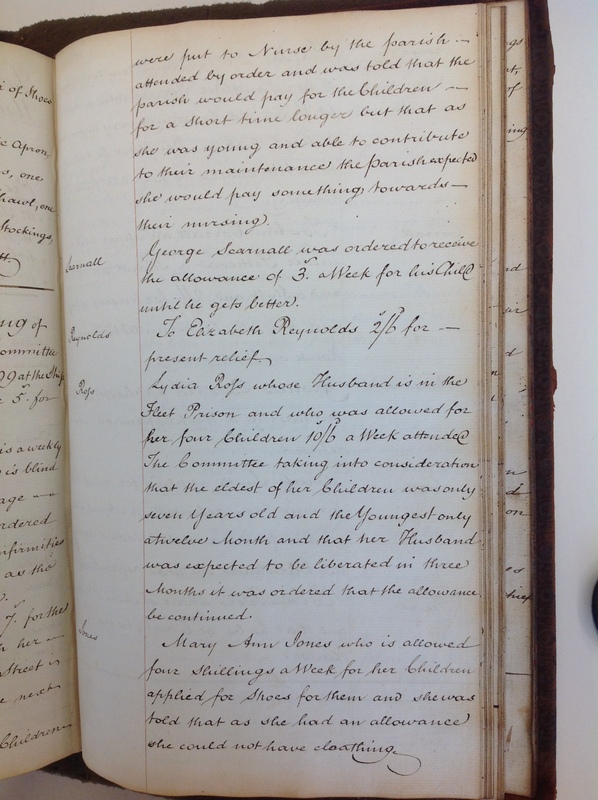 were put to Nurse by the parish —
attended by order and was told that the
parish would pay for the Children —
for a short time longer but that as
she was young and able to contribute
to their maintenance the Parish expected
she would pay something towards —
their nursing.
Scarnall
George Scarnall was ordered to receive
the allowance of 3s. a Week for his Child
until he gets better.
Reynolds
To Elizabeth Reynolds 2s/6 for —
present relief
Ross
Lydia Ross whose Husband is in the
Fleet Prison and who was allowed for
her four Children 10s/6 a Week attended
The Committee taking into consideration
that the eldest of her Children was only
seven Years old and the Youngest only
a twelve Month and that her Husband
was expected to be liberated in three
Months it was ordered that the allowance
be continued.
Jones
Mary Ann Jones who is allowed
four Shillings a Week for her Children
applied for Shoes for them and she was
told that as she had an allowance
she could not have cloathing.
of Shoes
Apron,
one
Shawl, one
Stockings,
of
ommittee
29 at the
5. for
is a weekly
is blind
age —
rdered
nfirmities
as the
7s. for the
her —
Street is
next
Children